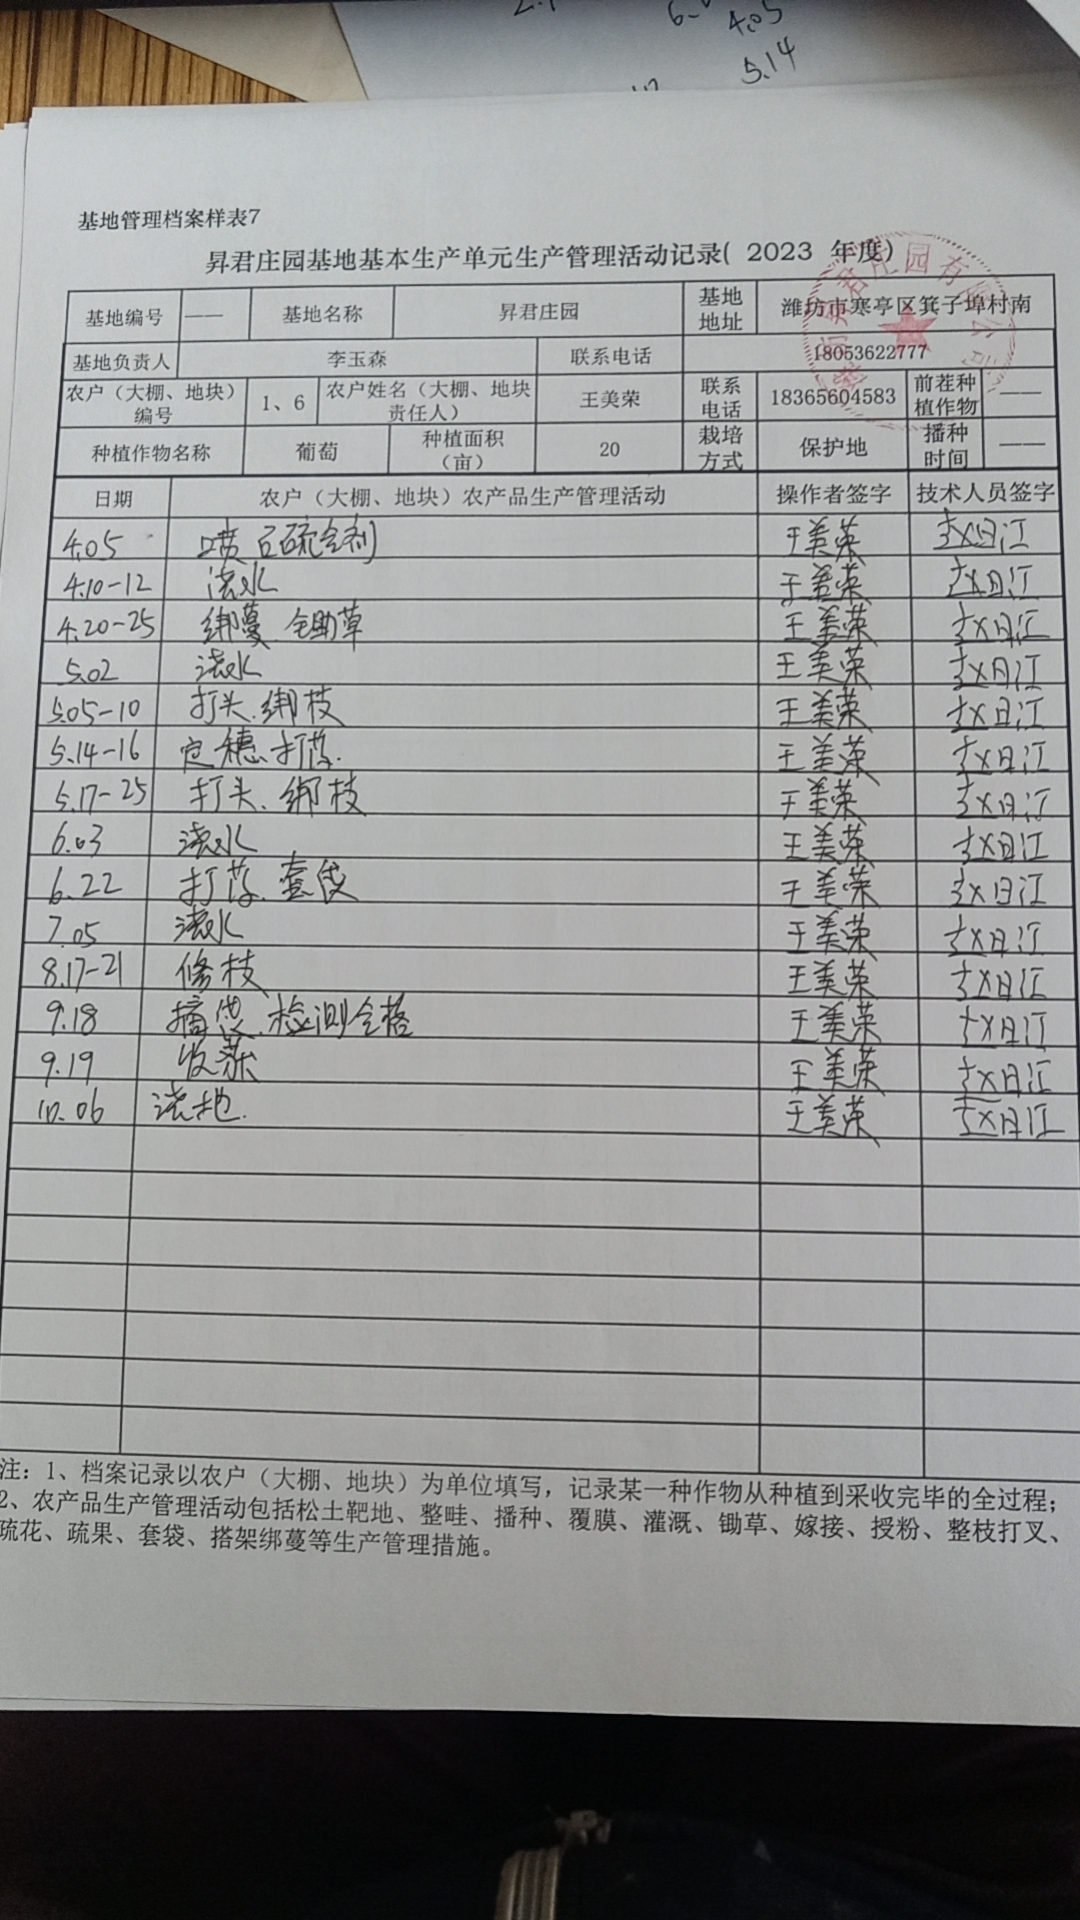 4.05
5.14
基地管理档案样表7
昇君庄园基地基本生产单元生产管理活动记录( 2023 年度)
基地编号 —— 基地名称 昇君庄园 基地地址 潍坊市寒亭区箕子埠村南
基地负责人 李玉森 联系电话 18053622777
农户（大棚、地块）编号 1、6 农户姓名（大棚、地块责任人） 王美荣 联系电话 18365604583 前茬种植作物 ——
种植作物名称 葡萄 种植面积（亩） 20 栽培方式 保护地 播种时间 ——
日期 农户（大棚、地块）农产品生产管理活动 操作者签字 技术人员签字
4.05 喷石硫合剂 王美荣
4.10-12 浇水 王美荣
4.20-25 绑蔓、锄草 王美荣
5.02 浇水 王美荣
5.05-10 打头、绑枝 王美荣
5.14-16 定穗、打药. 王美荣
5.17-25 打头、绑枝 王美荣
6.03 浇水 王美荣
6.22 打药、套袋 王美荣
7.05 浇水 王美荣
8.17-21 修枝 王美荣
9.18 摘袋、检测合格 王美荣
9.19 收获 王美荣
10.06 浇地. 王美荣
注：1、档案记录以农户（大棚、地块）为单位填写，记录某一种作物从种植到采收完毕的全过程；
2、农产品生产管理活动包括松土靶地、整畦、播种、覆膜、灌溉、锄草、嫁接、授粉、整枝打叉、
疏花、疏果、套袋、搭架绑蔓等生产管理措施。